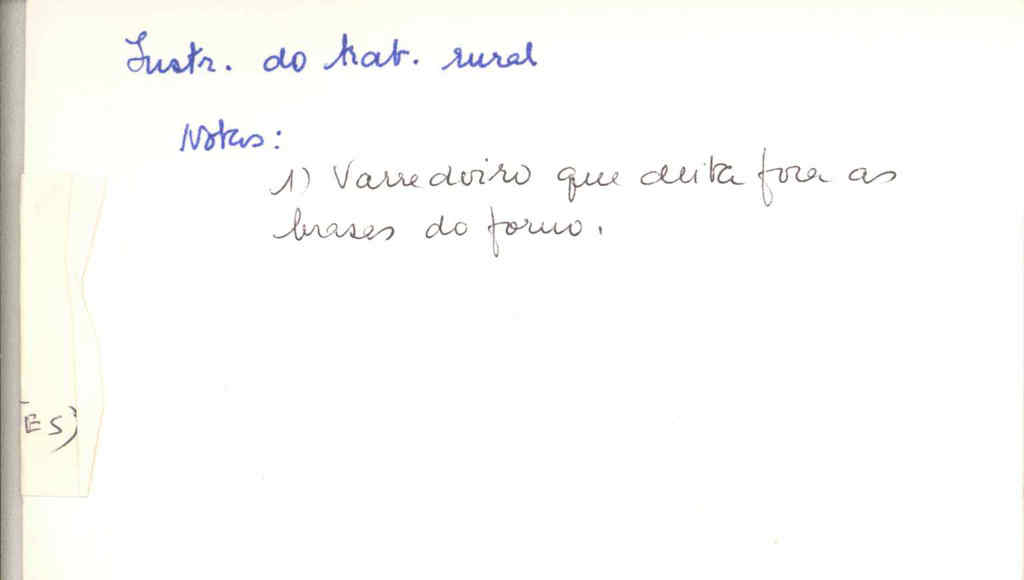 Instr. do trab. rural
Notas:
1) Varredoiro que deita fora as
brases do forno.
ES)